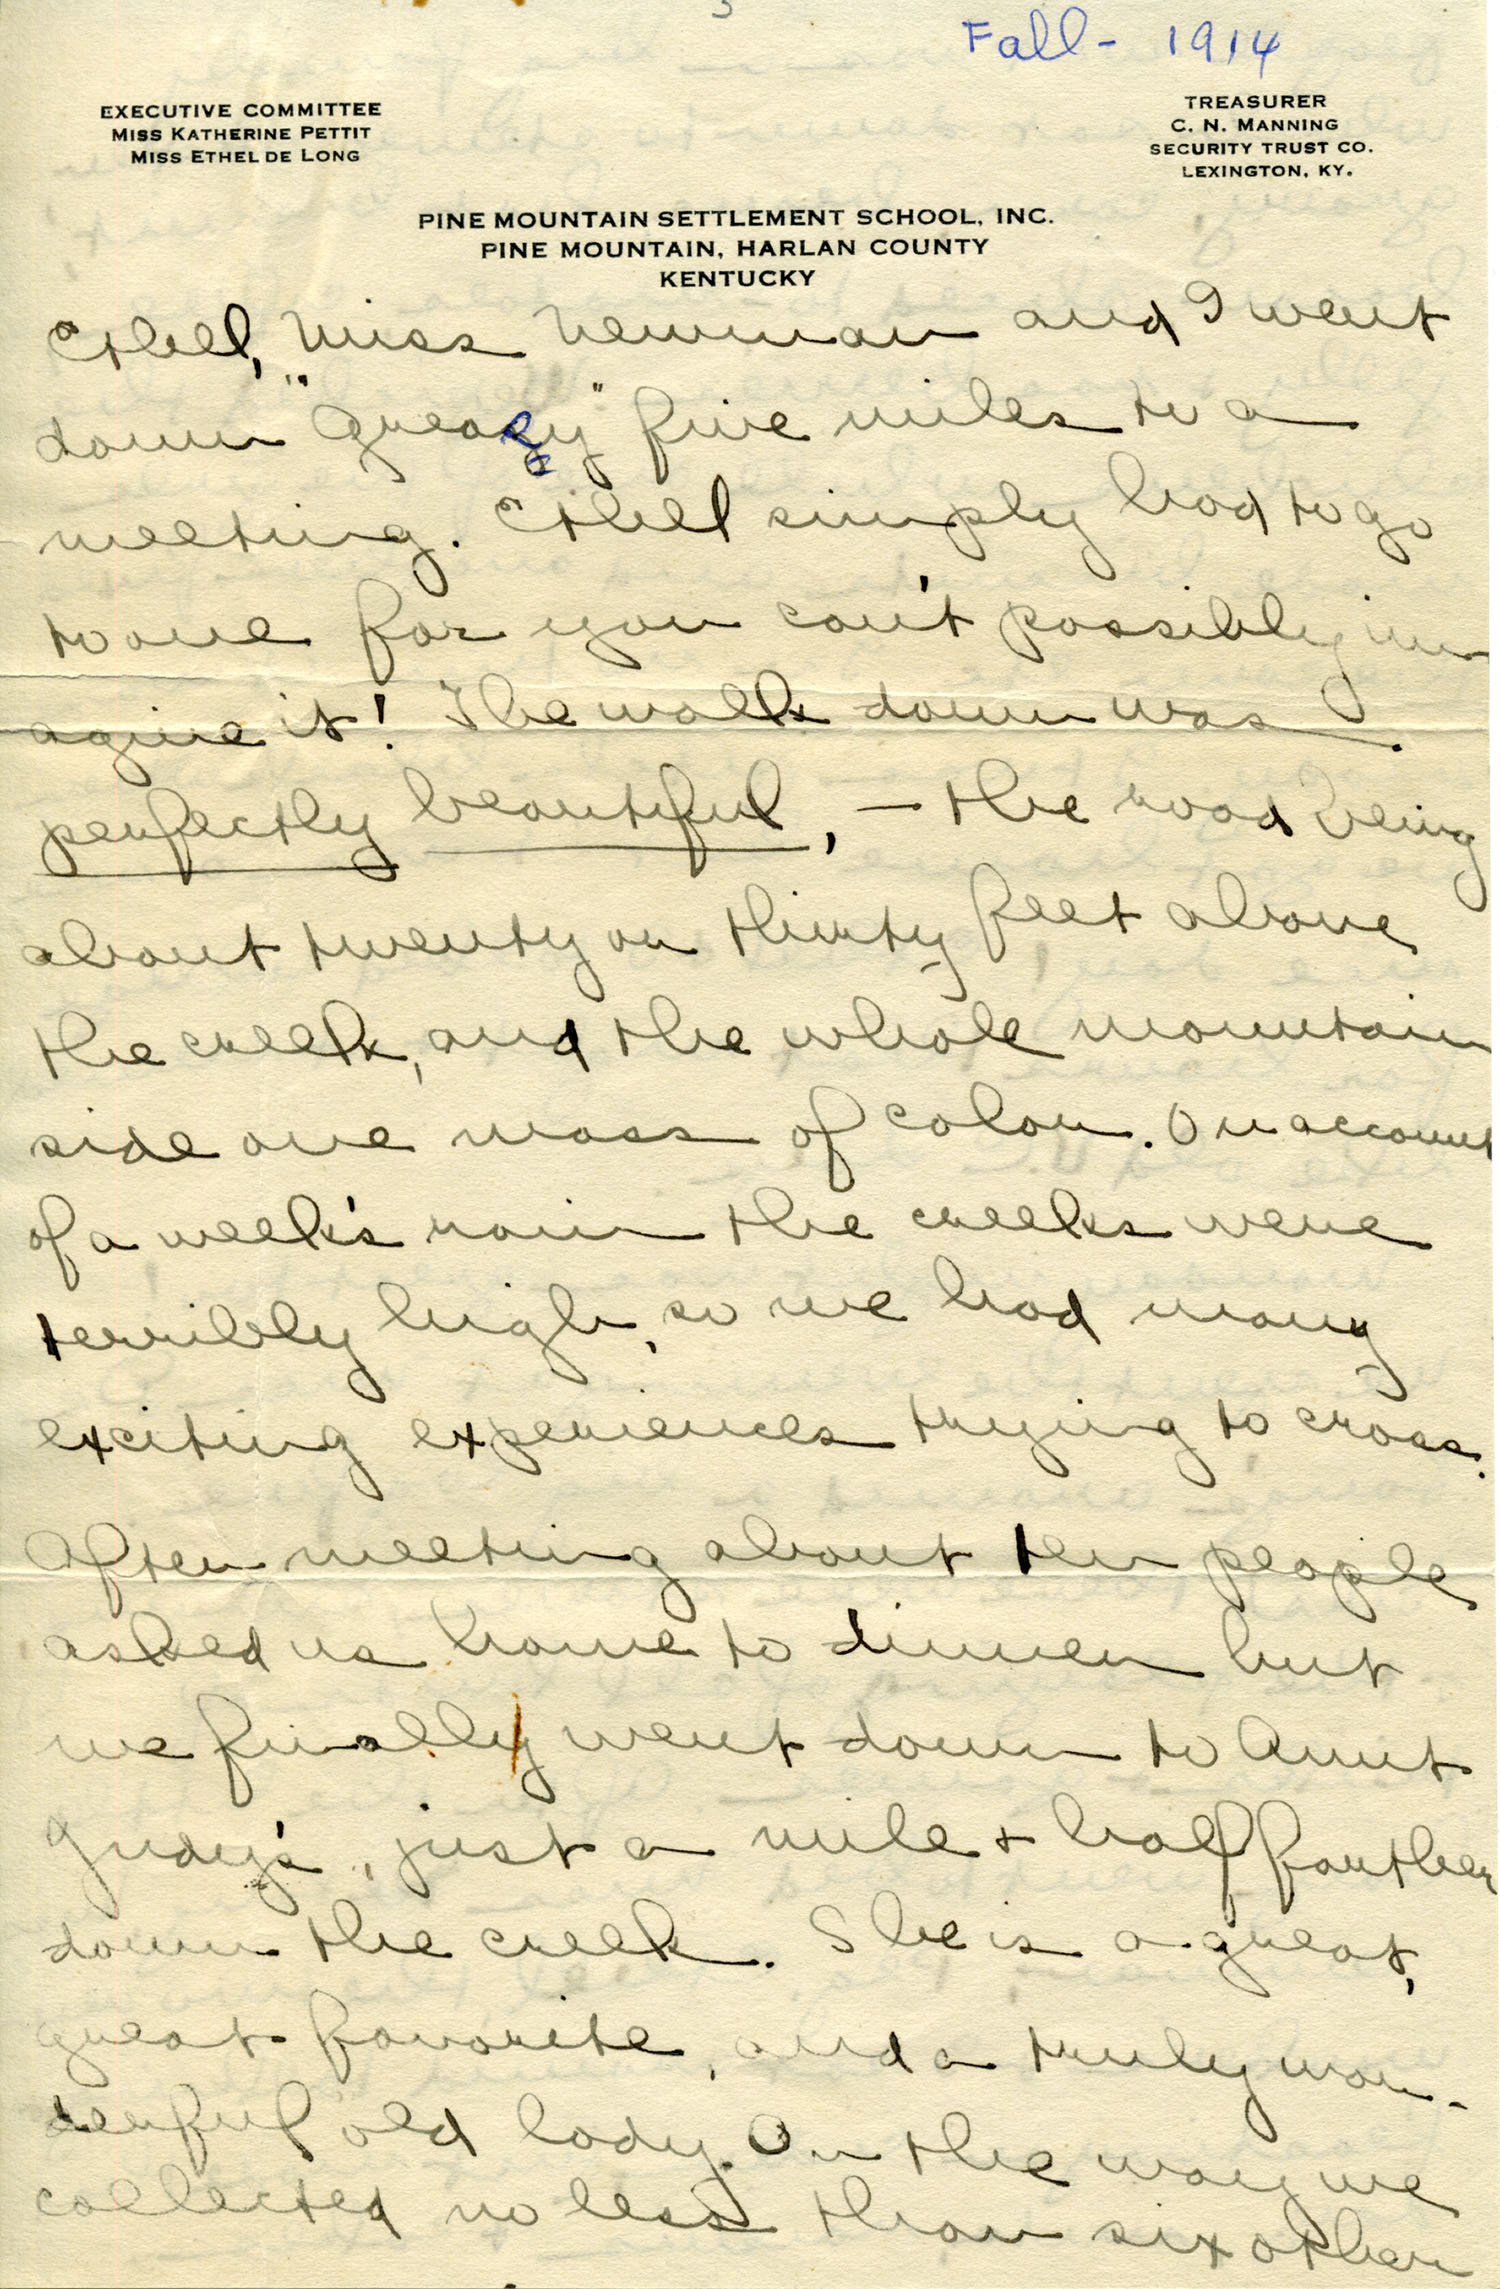 Fall - 1914
EXECUTIVE COMMITTEE
MISS KATHERINE PETTIT
MISS ETHEL DE LONG
TREASURER
C. N. MANNING
SECURITY TRUST CO.
LEXINGTON, KY.
PINE MOUNTAIN SETTLEMENT SCHOOL, INC.
PINE MOUNTAIN, HARLAN COUNTY
KENTUCKY
Ethel, Miss Newman and I went
down "Greasy" five miles to a
meeting. Ethel simply had to go
to one for you can't possibly im
agine it! The walk down was
perfectly beautiful, — the road being
about twenty or thirty feet above
the creek, and the whole mountain
side one mass of color. On account
of a week's rain the creeks were
terribly high, so we had many
exciting experiences trying to cross.
After meeting about ten people
asked us home to dinner but
we finally went down to Aunt
Judy's, just a mile + half farther
down the creek. She is a great,
great favorite, and a truly won-
derful old lady. On the way we
collected no less than six other